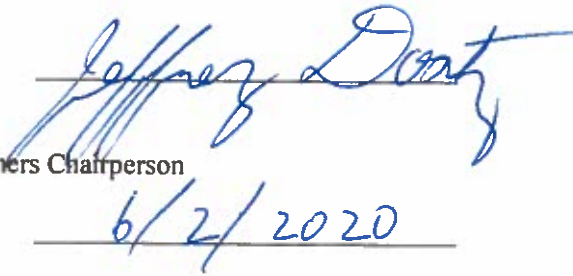 Jeffrey
ners Chairperson
6/2/2020